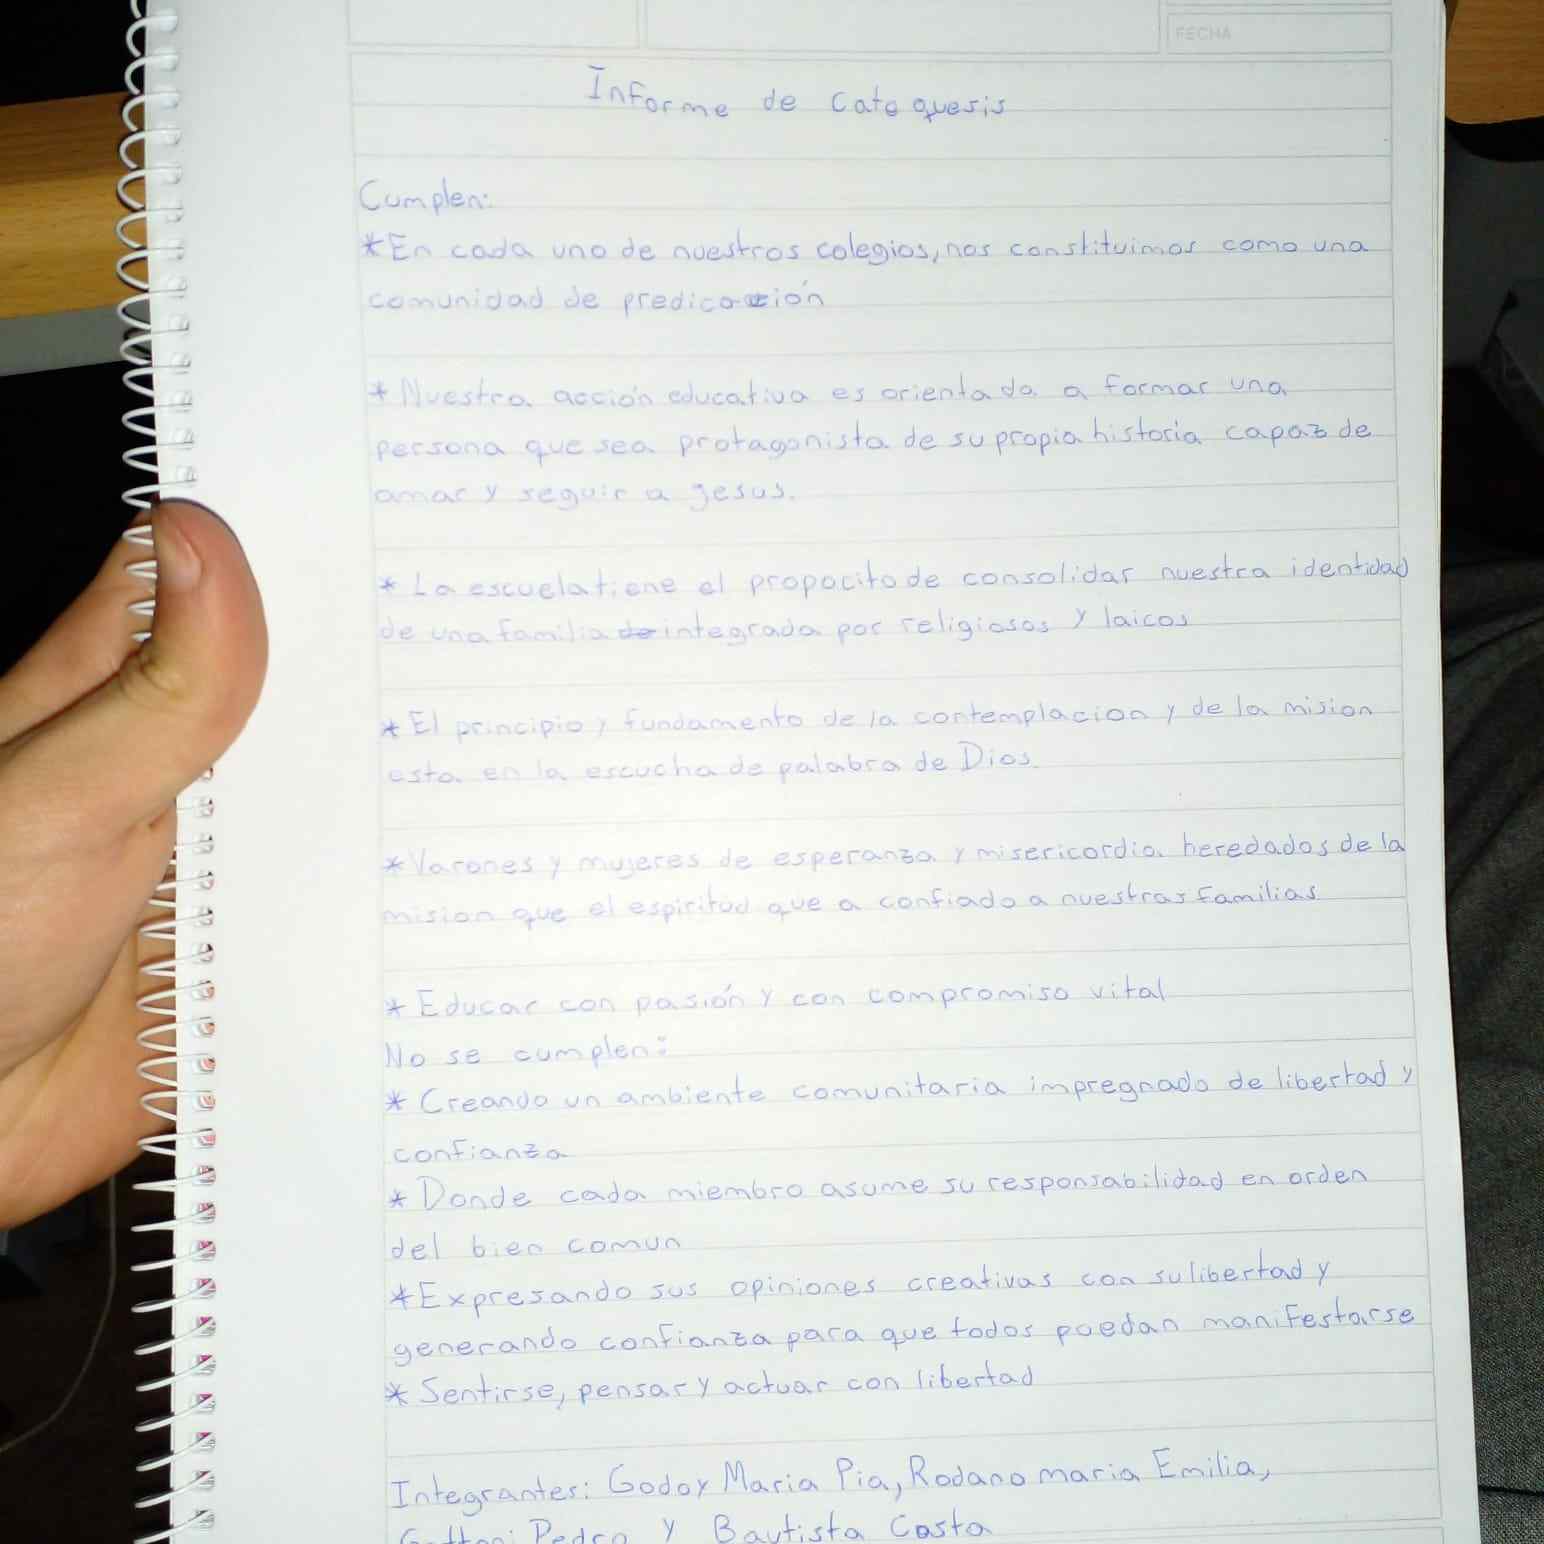 FECHA
Informe de catequesis
Cumplen:
*En cada uno de nuestros colegios, nos constituimos como una
comunidad de predicación
* Nuestra acción educativa es orientada a formar una
persona que sea protagonista de su propia historia capaz de
amar y seguir a jesus.
* La escuela tiene el propocito de consolidar nuestra identidad
de una familia de integrada por religiosos y laicos
* El principio y fundamento de la contemplacion y de la mision
esta en la escucha de palabra de Dios.
*Varones y mujeres de esperanza y misericordia heredados de la
mision que el espiritud que a confiado a nuestras familias
* Educar con pasión y con compromiso vital
No se cumplen:
* Creando un ambiente comunitaria impregnado de libertad y
confianza
* Donde cada miembro asume su responsabilidad en orden
del bien comun
*Expresando sus opiniones creativas con su libertad y
generando confianza para que todos puedan manifestarse
* Sentirse, pensar y actuar con libertad
Integrantes: Godoy Maria Pia, Rodano maria Emilia,
Pedro y Bautista Costa